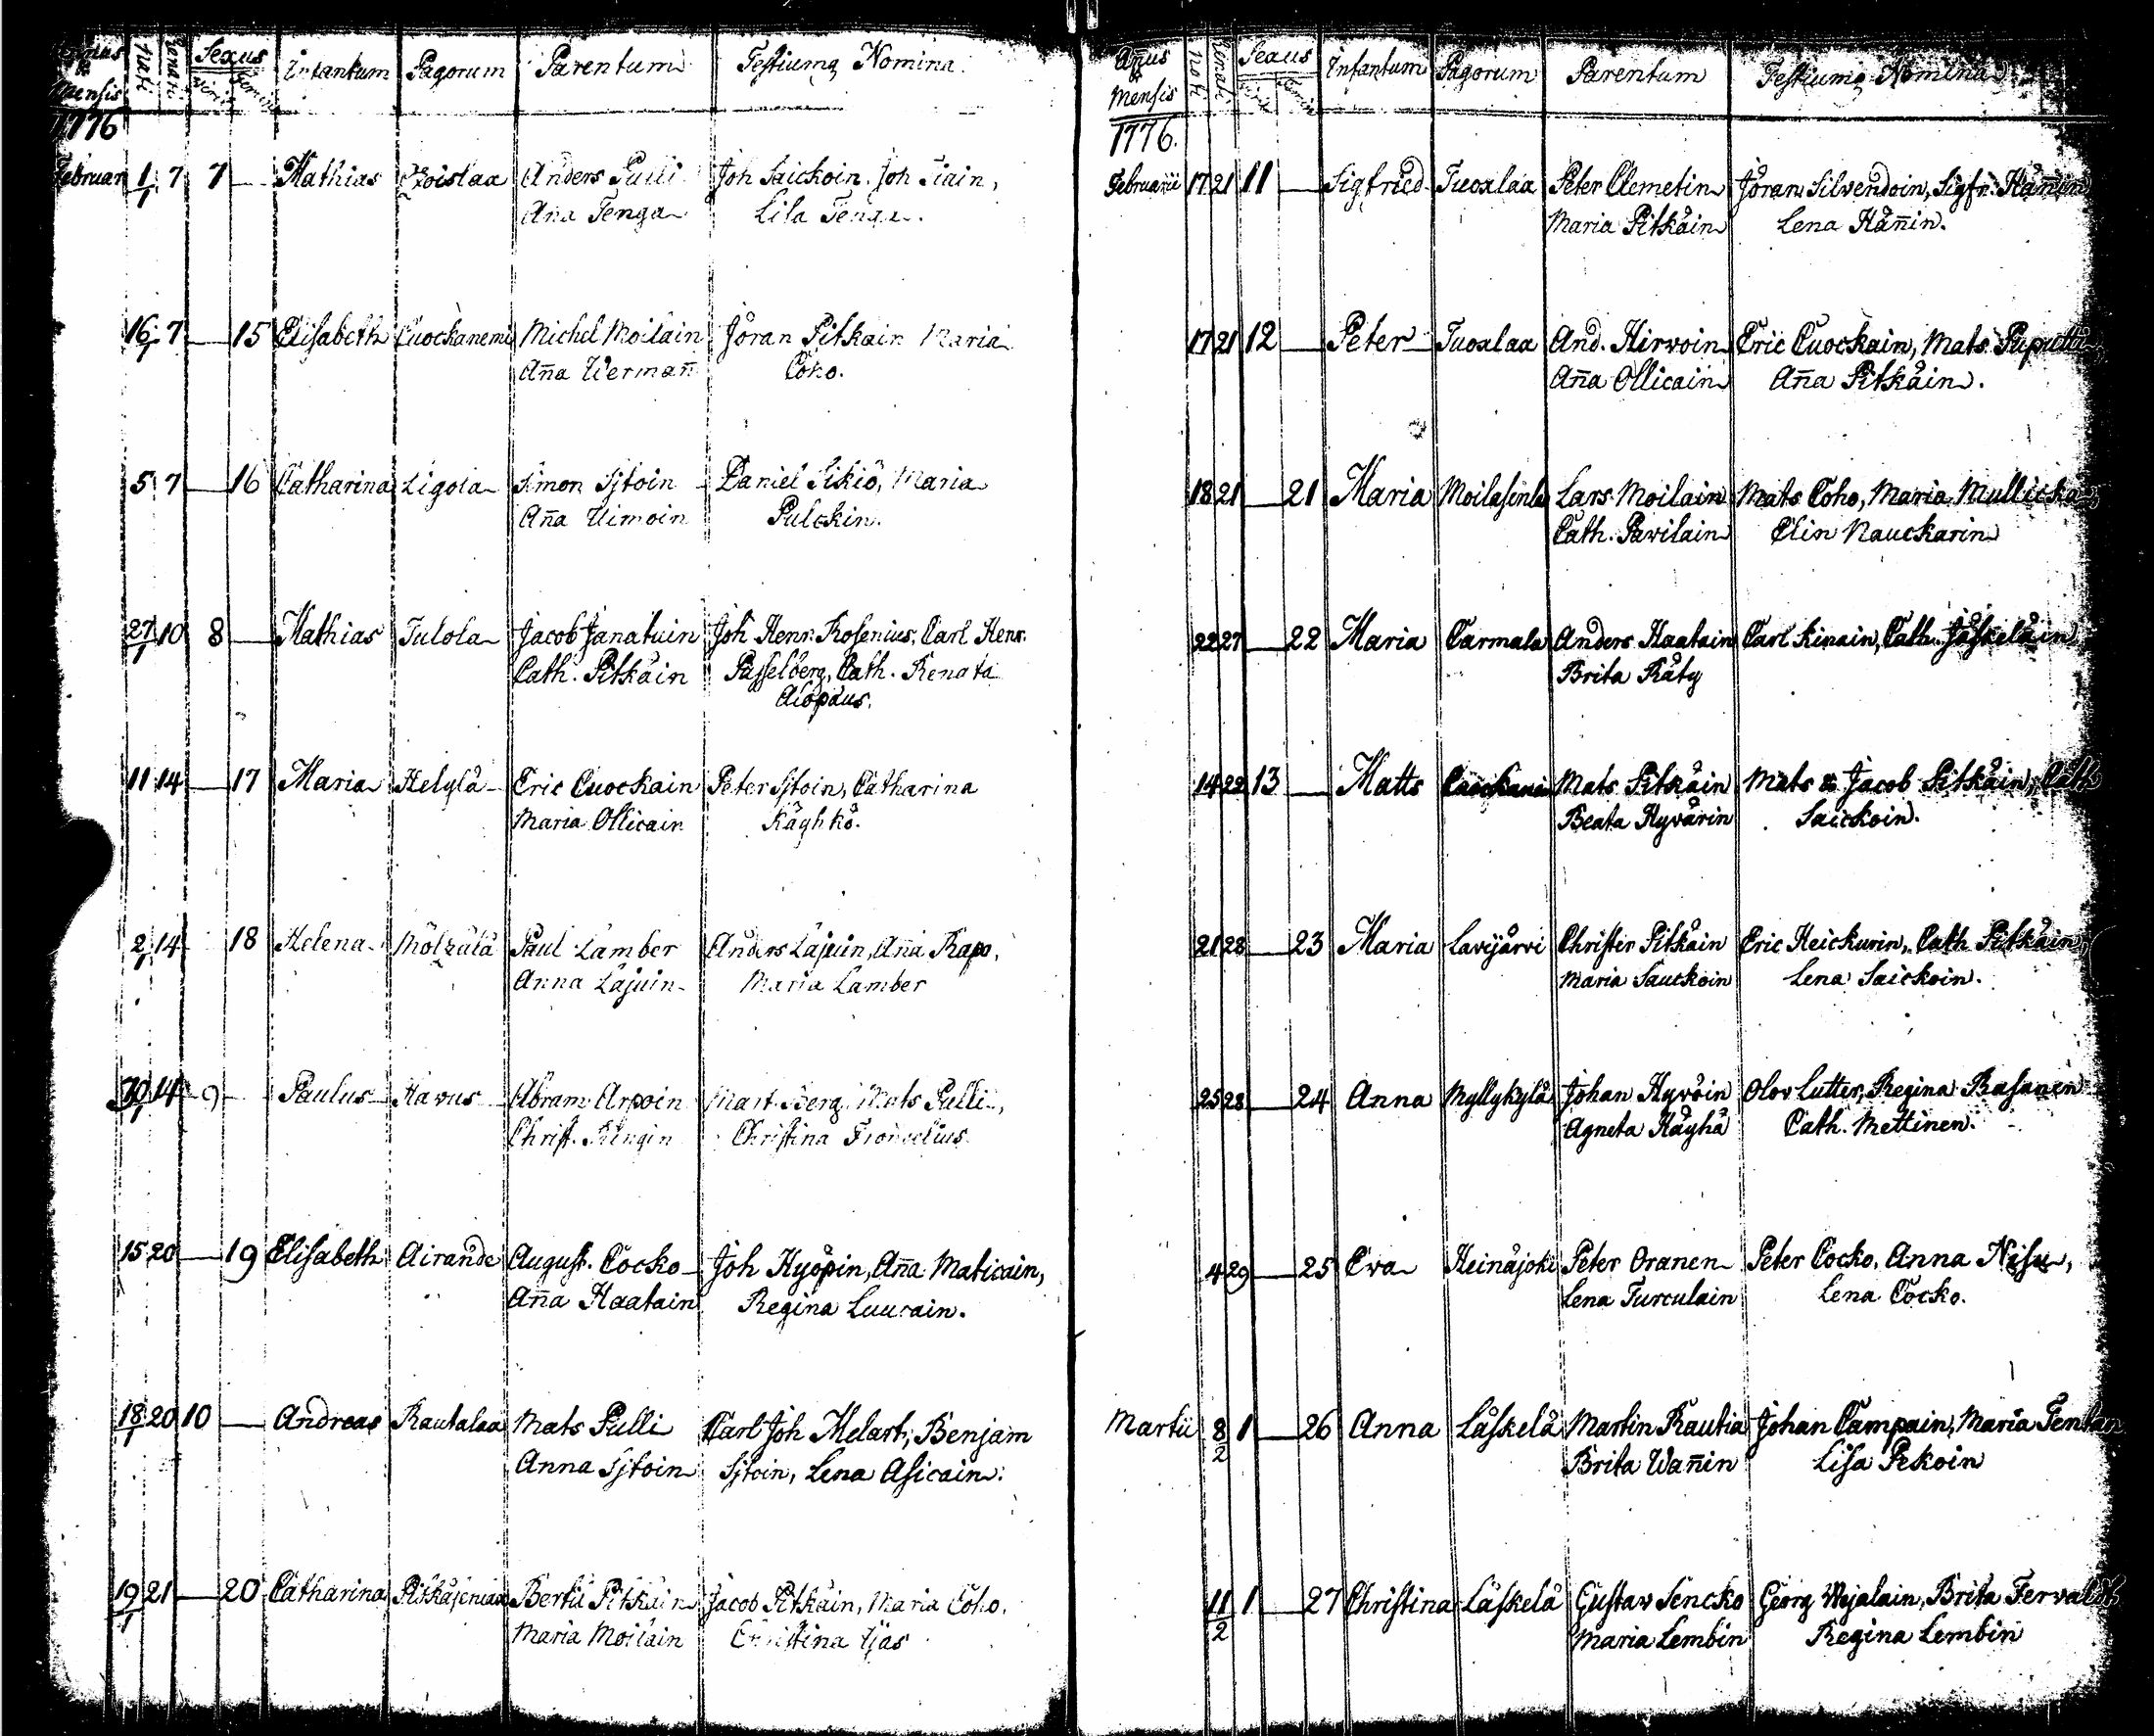 Mensis Nati Renati Sexus Infantum Pagorum Parentum Testiumq Nomina.
1776
Februar 1/1 7 7 — Mathias Anders Pulli Joh Saickoin. Joh Tiain,
Aña Tenga Lisa Tenga.
16/1 7 — 15 Elisabeth Cuockanemi Michel Moilain Jöran Pitkäin Maria
Aña Wermañ Coho.
5 7 — 16 Catharina Ligola Simon Sjtoin Daniel Sikiö, Maria
Aña Uimoin Pulckin.
27/1 10 8 — Mathias Tulola Jacob Janatuin Joh Henr. Rosenius, Carl Henr.
Cath. Pitkäin Passelberg, Cath. Renata
Alopäus.
11 14 — 17 Maria Helylä Eric Cuockain Peter Sjtoin, Catharina
Maria Ollicain Käyhkö.
2/1 14 18 Helena Paul Lamber Anders Läjuin, Aña Rapo,
Anna Läjuin Maria Lamber
30/1 14 9 — Paulus Havus Abram Arpoin Mart. Berg. Mats Pulli,
Christ. Christina
15 20 — 19 Elisabeth Airañde August. Cocko Joh Hyöpin, Aña Maticain,
Aña Haatain Regina Luucain.
18/1 20 10 — Andreas Rautalaa Mats Pulli Carl Joh Melart, Benjam
Anna Sjtoin Sjtoin, Lena Asicain.
19/1 21 — 20 Catharina Bertil Pitkäin Jacob Pitkäin, Maria Coho,
Maria Moilain Christina Ijäs
Añus & Mensis Nati Renati Sexus Infantum Pagorum Parentum Testiumq Nomina
1776.
Februarii 17 21 11 — Sigfried Tuoxlaa Peter Clemetin Jöran Silvendoin, Sigfr. Häñin
Maria Pitkäin Lena Häñin.
17 21 12 — Peter Tuoxlaa And. Hirvoin Eric Cuockain, Mats Puputti
Aña Ollicain Aña Pitkäin.
18 21 — 21 Maria Lars Moilain Mats Coho, Maria Mullicka,
Cath. Pavilain Elin Nauckarin
22 27 — 22 Maria Carmala Anders Haatain Carl Kinain, Cath. Jäskeläin
Brita Räty
14 22 13 — Matts Mats Pitkäin Mats & Jacob Pitkäin, Cath
Beata Hyvärin Saickoin.
21 28 — 23 Maria Lavijärvi Christer Pitkäin Eric Heickurin, Cath Pitkäin,
Maria Sauckoin Lena Saickoin.
25 28 — 24 Anna Myllykylä Johan Hyvöin Olov Lutter, Regina Basanen
Agneta Käyhä Cath. Mettinen.
4 29 — 25 Eva Heinäjoki Peter Oranen Peter Cocko, Anna Nisu,
Lena Turculain Lena Cocko.
Martii 8/2 1 — 26 Anna Läskelä Martin Rautia Johan Campain, Maria
Brita Wañin Lisa Pekoin
11/2 1 — 27 Christina Läskelä Gustav Sencko Georg Wejalain, Brita
Maria Lembin Regina Lembin